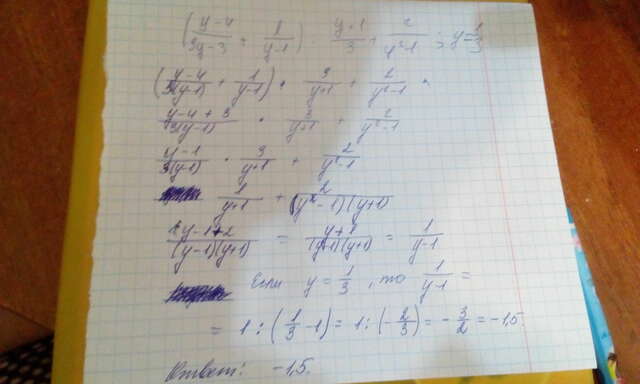 (y-4/3y-3 + 1/y-1) : y+1/3 + 2/y²-1 ; y=1/3
(y-4/3(y-1) + 1/y-1) · 3/y+1 + 2/y²-1
y-4+3/3(y-1) · 3/y+1 + 2/y²-1
y-1/3(y-1) · 3/y+1 + 2/y²-1
1/y+1 + 2/(y-1)(y+1)
y-1+2/(y-1)(y+1) = y+1/(y-1)(y+1) = 1/y-1
Если y = 1/3, то 1/y-1 =
= 1 : (1/3 - 1) = 1 : (-2/3) = -3/2 = -1,5.
Ответ: -1,5.